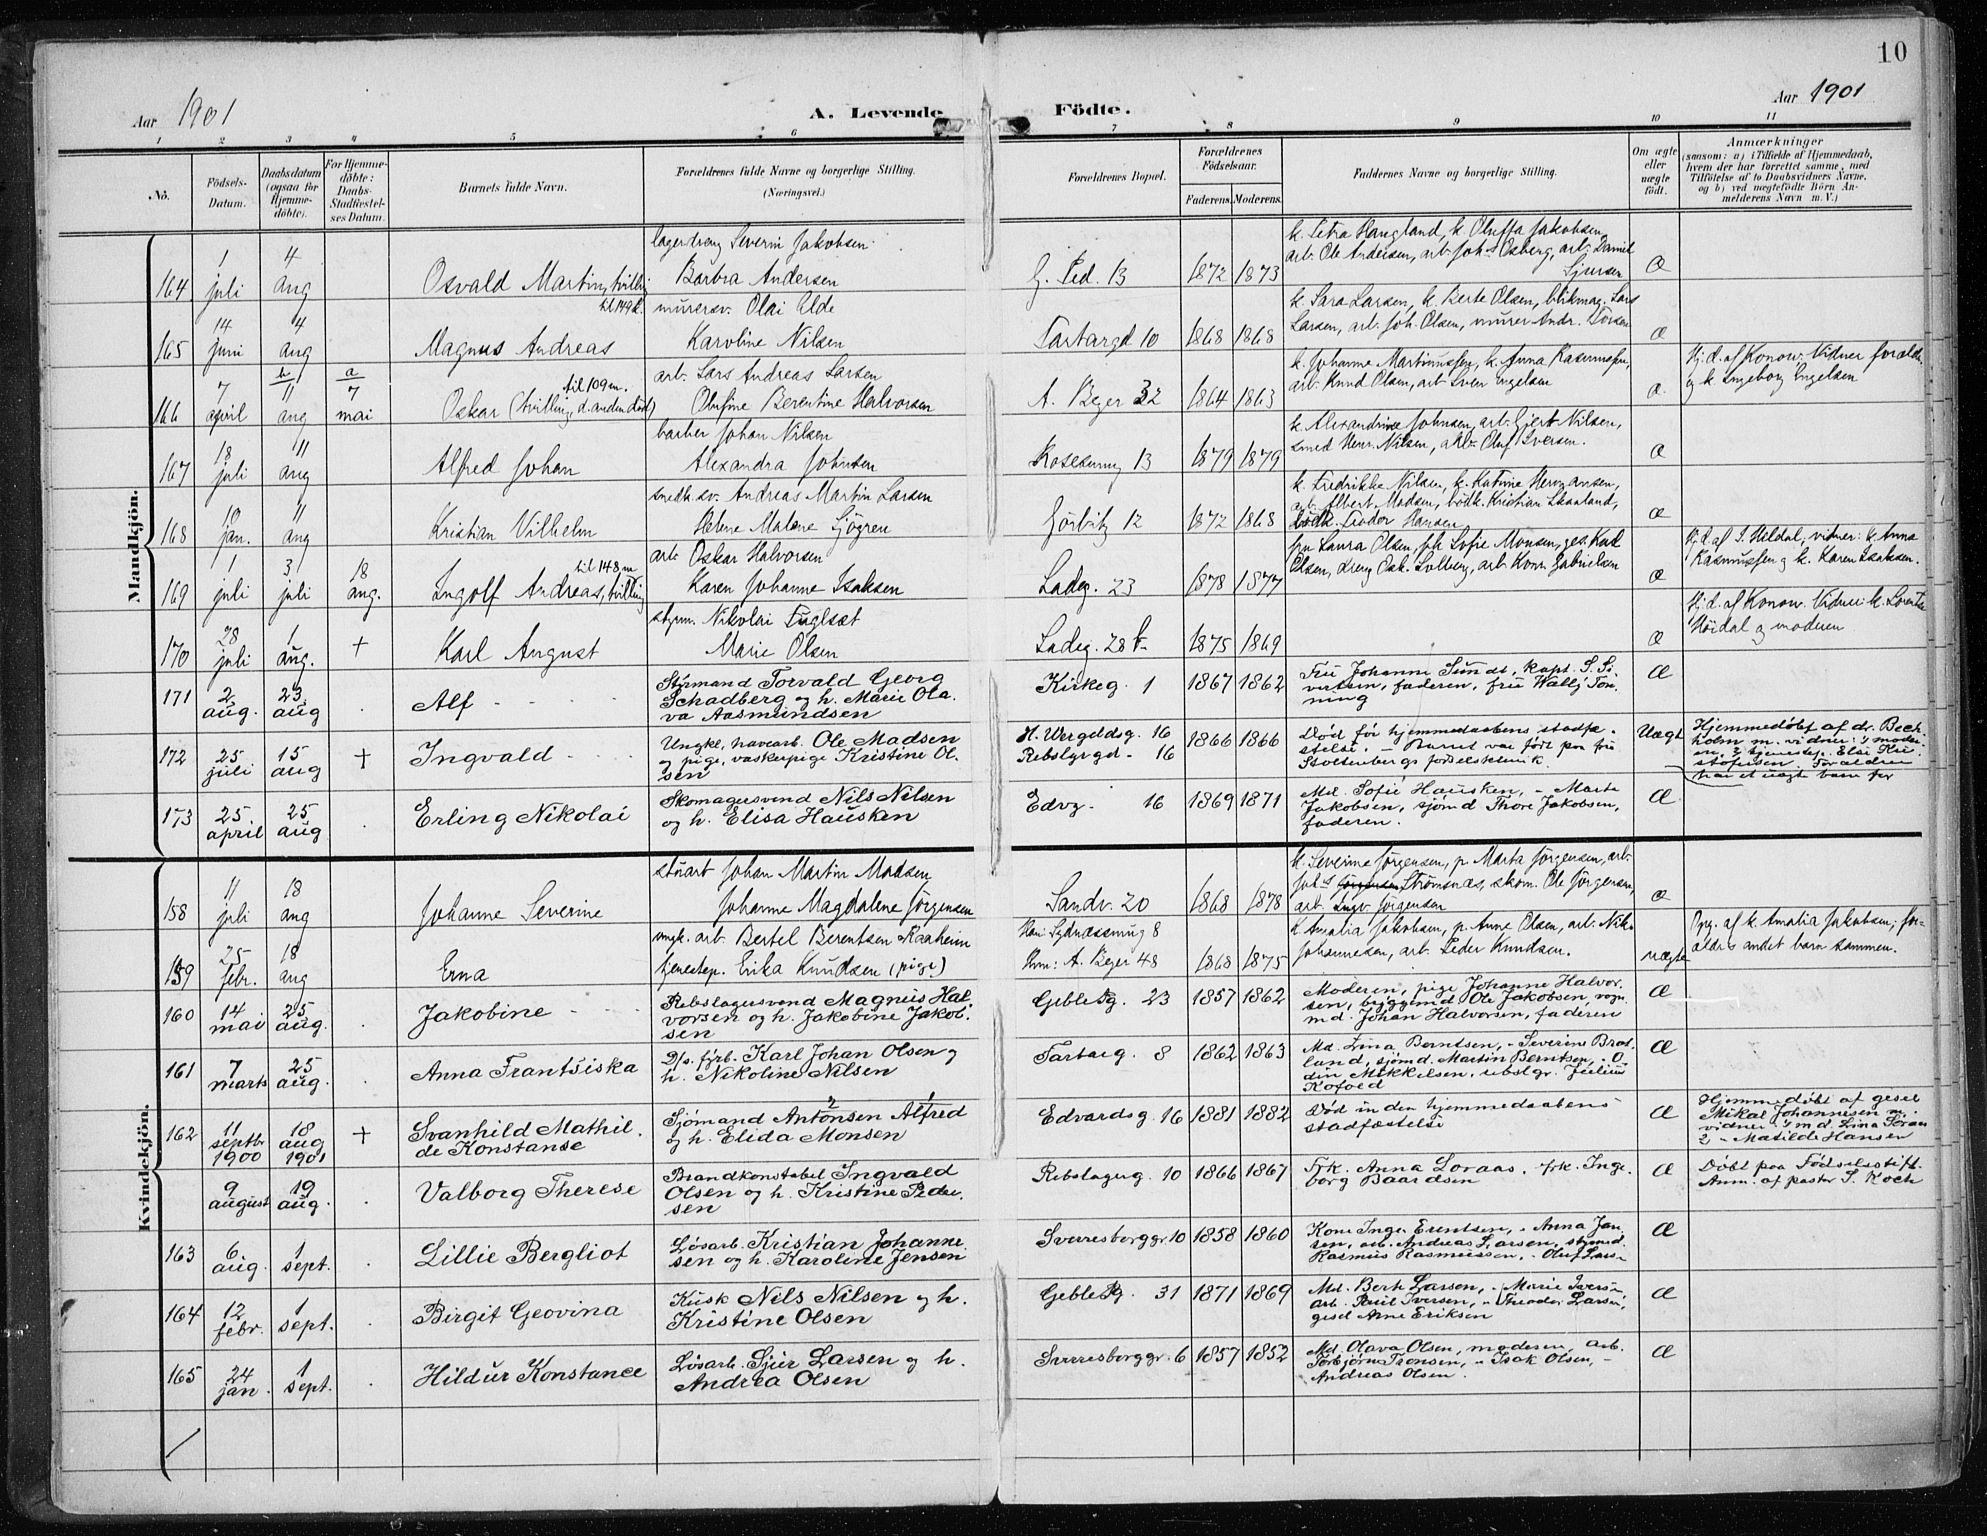 10
Aar 1901
A. Levende Födte.
Aar 1901
1 2 3 4 5 6 7 8 9 10 11
No.
Födsels-Datum.
Daabsdatum (ogsaa for Hjemme-döbte).
For Hjemme-döbte: Daabs-Stadfæstel-ses Datum.
Barnets fulde Navn.
Forældrenes fulde Navne og borgerlige Stilling. (Næringsvei.)
Forældrenes Bopæl.
Forældrenes Födselsaar.
Faderens. Moderens.
Faddernes Navne og borgerlige Stilling.
Om ægte eller uægte födt.
Anmærkninger
(saasom: a) i Tilfælde af Hjemmedaab, hvem der har forrettet samme, med Tilföielse af to Daabsvidners Navne, og b) ved uægtefödte Börn An-melderens Navn m. V.)
Mandkjön.
lagerdreng Severin Jakobsen
164 1 juli 4 aug Osvald Martin, tvilling til 149 k. Barbra Andersen
G. Ped. 13 1872 1873 k. Petra Haugland, k. Oluffa Jakobsen,
arb. Ole Andersen, arb. Joh. Osberg, arb. Daniel
Sjursen Æ
murersv. Olai Alde
165 14 juni 4 aug Magnus Andreas Karoline Nilsen
Tartargd 10 1868 1868 k. Sara Larsen, k. Berte Olsen, blikmag. Lars
Larsen, arb. Joh. Olsen, murer Andr. Æ
arb. Lars Andreas Larsen
166 7 april b 11 aug a 7 mai Oskar (tvilling, d. anden död) til 109 m. Olufine Berentine Halvorsen
A. Beyer 32 1864 1863 k. Johanne Martinussen, k. Anna Rasmussen,
arb. Knud Olsen, arb. Sven Engelsen Æ
Hj. d. af Konow. Vidner foræld.
og k. Ingeborg Engelsen
barber Johan Nilsen
167 18 juli 11 aug Alfred Johan Alexandra Johnsen
13 1879 1879 k. Alexandrine Johnsen, arb. Gjert Nilsen,
smed Henr. Nilsen, arb. Oluf Iversen. Æ
smedsv. Andreas Martin Larsen
168 10 jan. 11 aug Kristian Vilhelm Helene Malene Sjögren
Görbitz 12 1872 1868 k. Fredrikke Nilsen, k. Katrine Hermansen,
arb. Albert Madsen, bödk. Kristian Skaaland,
bödk. Teodor Hansen Æ
arb Oskar Halvorsen
169 1 juli 31 juli 18 aug. Ingolf Andreas, tvilling til 148 m Karen Johanne Isaksen
Ladeg. 23 1878 1877 fru Laura Olsen, pike Sofie Monsen, ges. Karl
Olsen, dreng Osk. Solberg, arb. Konr. Gabrielsen Æ
Hj. d. af S. Heldal, vidner: k. Anna
Rasmussen og k. Karen Isaksen.
styrm. Nikolai Fuglset
170 28 juli 1 aug. + Karl August Marie Olsen
Ladeg. 28 b 1875 1869 Æ
Hj. d. af Konow. Vidner: k. Lorentze
Höidal og moderen
171 2 aug. 23 aug Alf Styrmand Torvald Georg
Schadberg og h. Marie Ola
va Aasmundsen
Kirkeg. 1 1867 1862 Fru Johanne Sundt, kapt. S. Si
vertsen, faderen, fru Wally Ton
ning Æ
172 25 juli 15 aug + Ingvald Ungkl, havearb. Ole Madsen
og pige, vaskeripige Kristine Ol
sen
H. Wergeldsg. 16
Rebslgrgd. 16 1866 1866 Död för hjemmedaabens stadfæ
stelse. - Barnet var födt paa fru
Stoltenbergs födselsklinik. Uægt
Hjemmedöbt af dr. Bech
holm m. vidner: 1) moder
en, 2) tjenestep. Else Kri
stofersen. Forældren
har et uægte barn för
173 25 april 25 aug Erling Nikolai Skomagersvend Nils Nilsen
og h. Elisa Hausken
Edvg. 16 1869 1871 Md. Sofie Hausken, - Marte
Jakobsen, sjömd Thore Jakobsen,
faderen. Æ
Kvindekjön.
stuart Johan Martin Madsen
158 11 juli 18 aug Johanne Severine Johanne Magdalene Jörgensen
Sandv. 20 1868 1878 k. Severine Jörgensen, p. Marta Jörgensen, arb.
Johs Jörgensen Strömsnæs, skom. Ole Jörgensen,
arb. Ingv. Jörgensen Æ
ungk. arb. Bertel Berentsen Raaheim
159 25 febr. 18 aug Erna tjenestep. Erika Knudsen (pige)
Han: Sydnæssmug 8
Hun: A. Beyer 48 1868 1875 k. Amalia Jakobsen, p. Anne Olsen, arb. Nik.
Johannesen, arb. Peder Knudsen. uægte
Opg. af k. Amalia Jakobsen; for-
ældre andet barn sammen.
160 14 mai 25 aug. Jakobine Rebslagersvend Magnus Hal
vorsen og h. Jakobine Jakob.
sen
Gebleg. 23 1857 1862 Moderen, pige Johanne Halvor
sen, byggemd Ole Jakobsen, vogn
md. Johan Halvorsen, faderen Æ
161 7 marts 25 aug. Anna Frantsiska D/s. fyrb. Karl Johan Olsen og
h. Nikoline Nilsen
Tartarg. 8 1862 1863 Md. Lina Berntsen, - Severine Brat
land, sjömd. Martin Berntsen, - O
din Mikkelsen, rebslgr. Julius
Kofoed Æ
162 11 septbr 1900 18 aug 1901 + Svanhild Mathil.
de Konstanse Sjömand Antonsen 2 Alfred 1
og h. Elida Monsen
Edvardsg. 16 1881 1882 Död inden hjemmedaabens
stadfæstelse Æ
Hjemmedöbt af gesel
Mikal Johannesen m.
vidner 1) md. Lina
2 - Matilde Hansen
9 august 19 aug. Valborg Therese Brandkonstabel Ingvald
Olsen og h. Kristine Peder
sen
Rebslagerg. 10 1866 1867 Frk. Anna Loraas, frk. Inge.
borg Baardsen Æ
Döbt paa Födselsstift.
Anm. af pastor S. Koch
163 6 aug. 1 sept. Lillie Bergliot Lösarb. Kristian Johanne
sen og h. Karoline Jensen
Sverresborggr. 10 1858 1860 Kone Inge Erentsen, - Anna Jan
sen, arb. Andreas Larsen, styrmd.
Rasmus Rasmussen, - Oluf Lars- Æ
164 12 febr. 1 sept. Birgit Geovina Kusk Nils Nilsen og h.
Kristine Olsen
Gebleg. 31 1871 1869 Md. Berte Larsen, - Marie Ivers-
arb. Paul Iversen, - Theodor Larsen,
gesel Arne Eriksen Æ
165 24 jan. 1 sept. Hildur Konstance Lösarb. Sjur Larsen og h.
Andrea Olsen
Sverresborggr. 6 1857 1852 Md. Olava Olsen, moderen, arb.
Torbjörn Tronsen, - Isak Olsen, -
Andreas Olsen. Æ